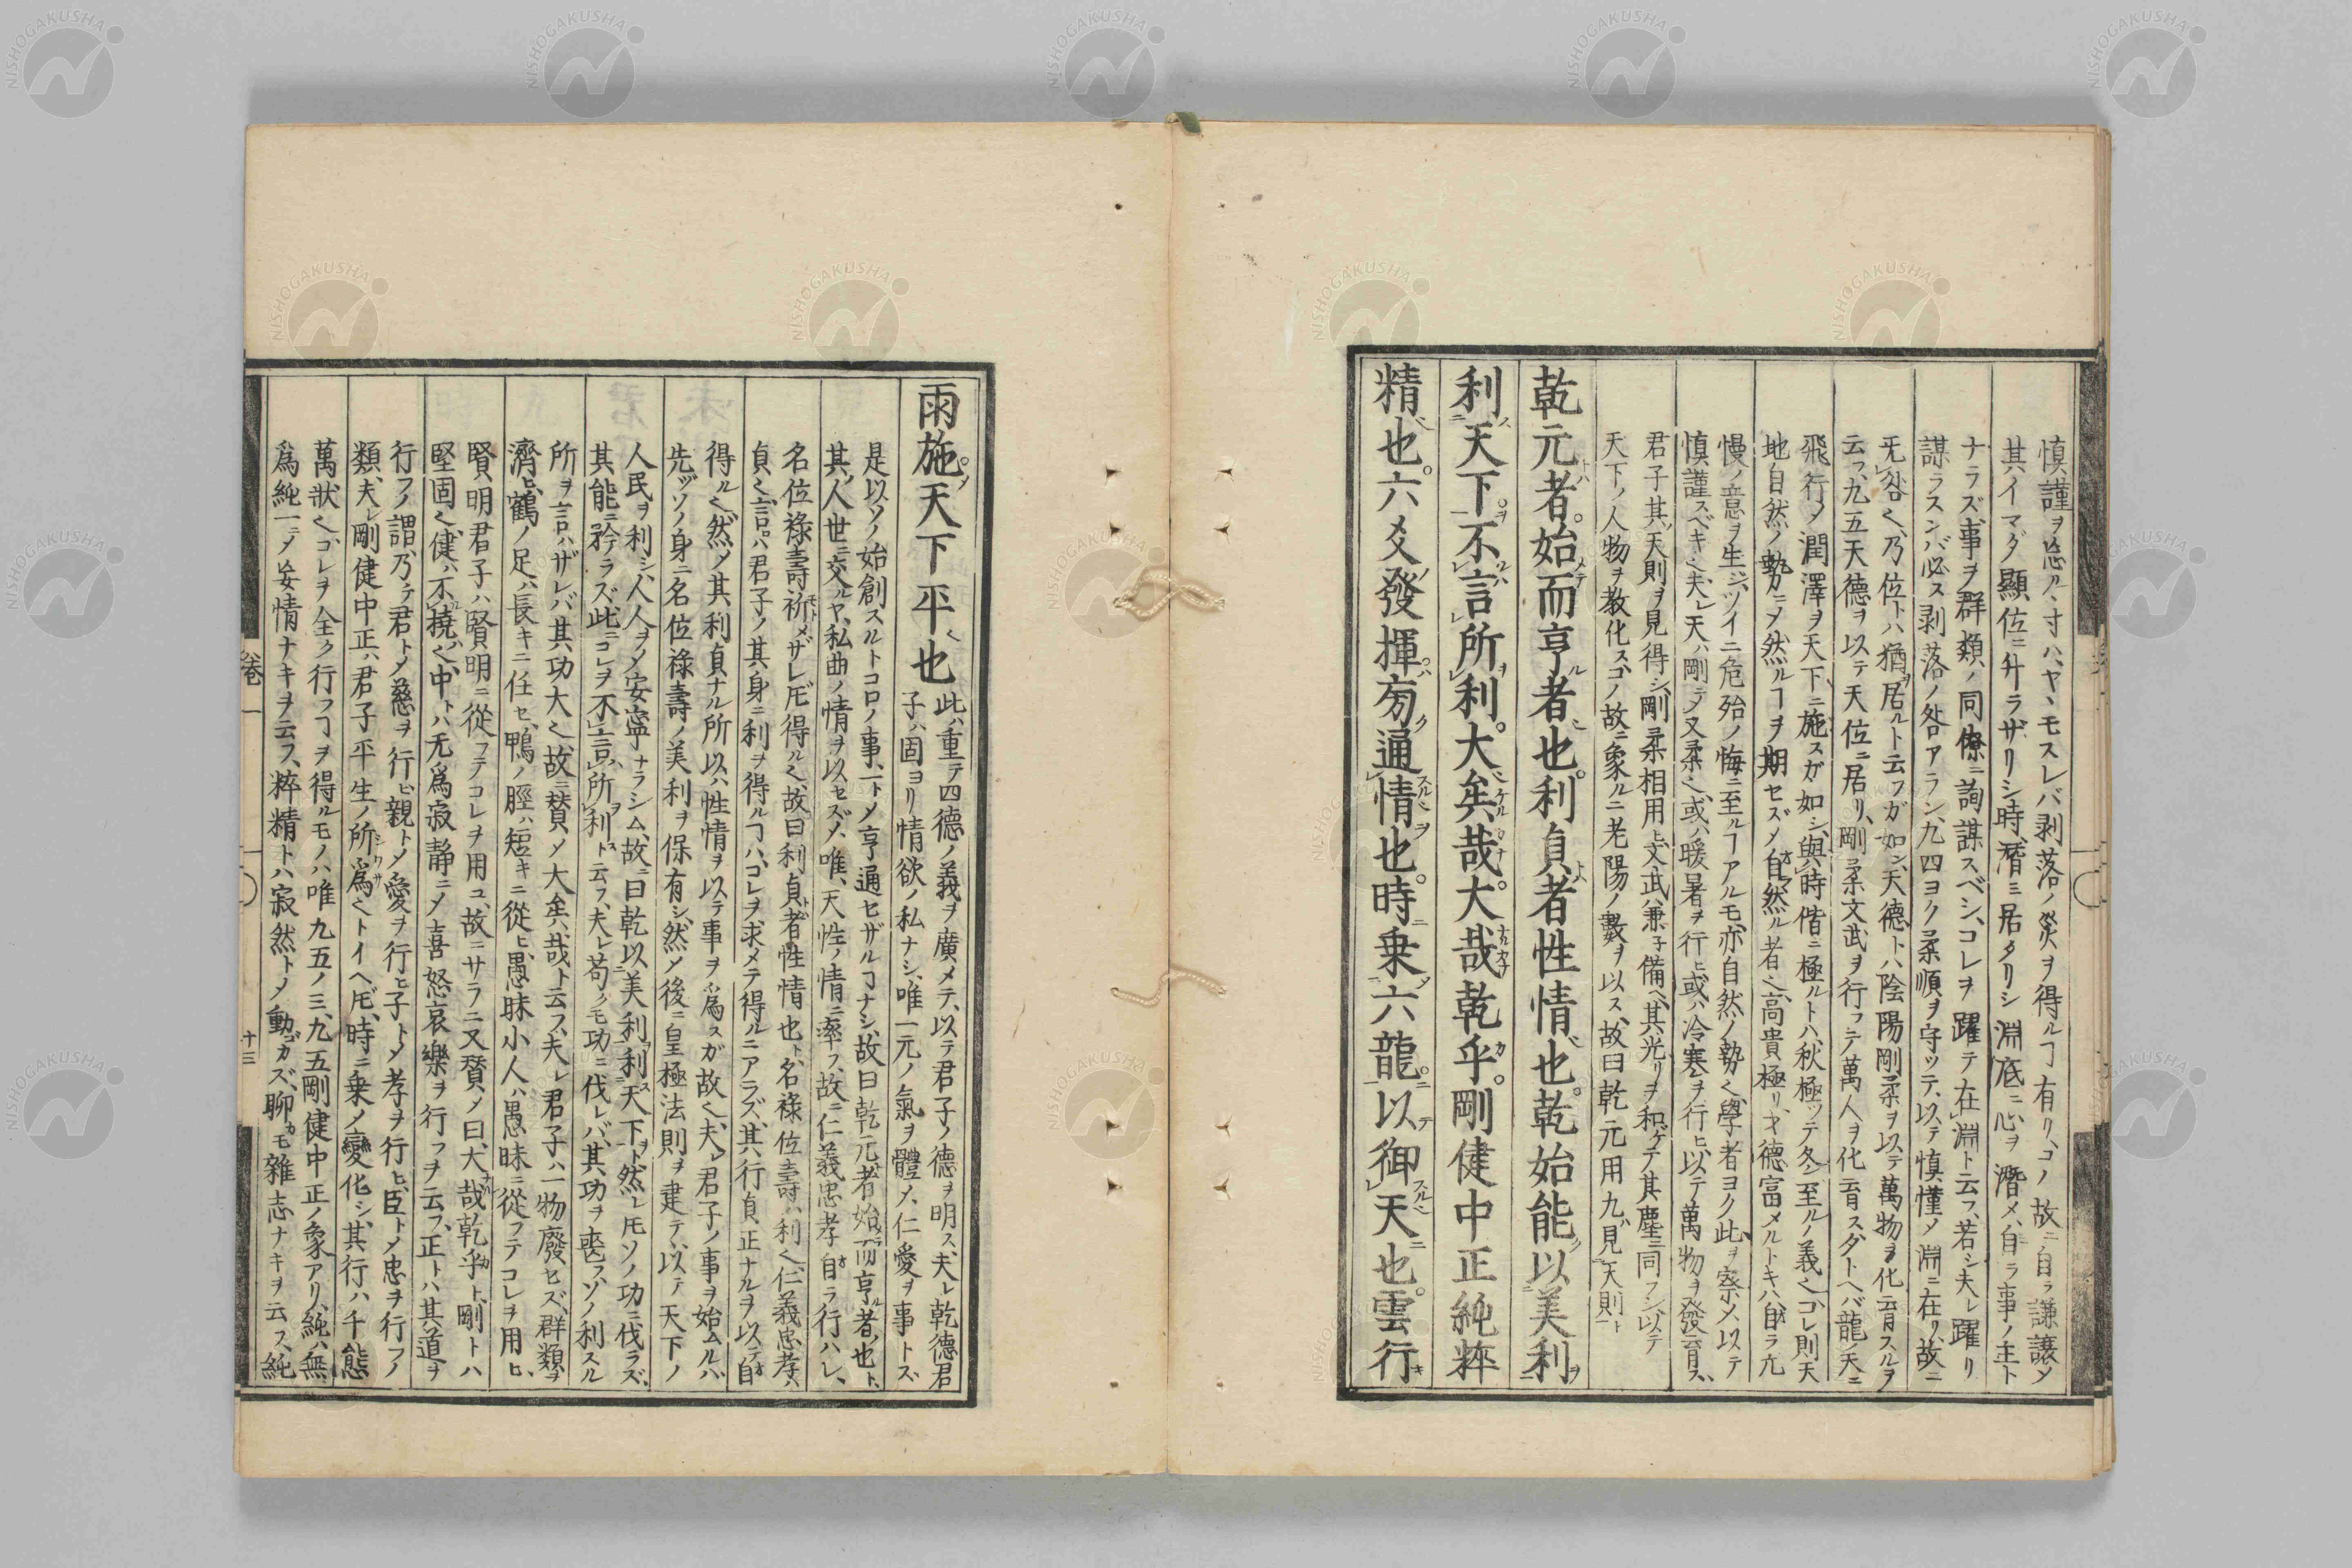 慎謹ヲ忘ル、寸ハ、ヤヽモスレバ剥落ノ災ヲ得ルヿ有リ、コノ故ニ自ラ謙譲メ
其イマダ顯位ニ升ラザリシ時、潛ミ居タリシ淵底ニ心ヲ潛メ、自ラ事ノ主ト
ナラズ、事ヲ群類ノ同僚ニ詢謀スベシ、コレヲ躍テ在淵ト云フ、若シ夫レ躍リ
謀ラスンバ必ス剥落ノ咎アラン、九四ヨク柔順ヲ守ツテ、以テ慎慬メ淵ニ在リ、故ニ
无咎也、乃位トハ猶居ルト云フガ如シ、天德トハ陰陽剛柔ヲ以テ萬物ヲ化育スルヲ
云フ、九五天德ヲ以テ天位ニ居リ、剛柔文武ヲ行フテ萬人ヲ化育ス、タトヘバ龍ノ天ニ
飛行メ潤澤ヲ天下ニ施スガ如シ、與時偕ニ極ルトハ、秋極ッテ冬至ルノ義也、コレ則天
地自然ノ勢ニメ然ルヿヲ期セズメ自然ル者也、高貴極リ、才德富メルトキハ、自ラ亢
慢ノ意ヲ生ジ、ツイニ危殆ノ悔ニ至ルヿアルモ、亦自然ノ勢也、學者ヨク此ヲ察メ、以テ
慎謹スベキ也、夫レ天ハ剛ニメ又柔也、或ハ暖暑ヲ行ヒ、或ハ冷寒ヲ行ヒ、以テ萬物ヲ發育ス、
君子其天則ヲ見得シ、剛柔相用ヒ、文武兼子備ヘ、其光リヲ和ゲテ其塵ニ同フシ、以テ
天下ノ人物ヲ教化ス、コノ故ニ象ルニ老陽ノ數ヲ以ス、故曰乾元用九、見天則ト
乾元者。始而亨者也。利貞者性情也。乾始能以美利
利天下。不言所利。大矣哉。大哉乾乎。剛健中正純粹
精也。六爻發揮。旁通情也。時乗六龍。以御天也。雲行
雨施。天下平也
此ハ重テ四德ノ義ヲ廣メテ、以テ君子ノ德ヲ明ス、夫レ乾德君
子ハ固ヨリ情欲ノ私ナシ、唯一元ノ氣ヲ體メ、仁愛ヲ事トズ
是以ソノ始創スルトコロノ事、一トメ亨通セザルヿナシ、故曰乾元者始而亨者也ト、
其人世ニ交ルヤ、私曲ノ情ヲ以セズメ、唯天性ノ情ニ率フ、故ニ仁義忠孝自ラ行ハレ、
名位祿壽祈メザレ𪜈得ル也、故曰利貞者性情也ト、名祿位壽ハ利也、仁義忠孝ハ
貞也、言ハ君子ノ其身ニ利ヲ得ルヿハ、コレヲ求メテ得ルニアラズ、其行貞正ナルヲ以テ自
得ル也、然メ其利貞ナル所以ハ、性情ヲ以テ事ヲ為スガ故也、夫レ君子ノ事ヲ始ムルハ
先ッソノ身ニ名位祿壽ノ美利ヲ保有シ、然メ後ニ皇極法則ヲ建テ、以テ天下ノ
人民ヲ利シ、人人ヲメ安寧ナラシム、故ニ曰乾以美利利天下ヲト、然レ𪜈ソノ功ニ伐ラズ、
其能ニ矜ラズ、此ニコレヲ不言所利ト云フ、夫レ苟クモ功ニ伐レバ、其功ヲ喪フ、ソノ利スル
所ヲ言ハザレバ其功大也、故ニ賛メ大矣哉ト云フ、夫レ君子ハ一物廢セズ、群類ヲ
濟ヒ、鶴ノ足ハ長キニ任セ、鴨ノ脛ハ短キニ從ヒ、愚昧小人ハ愚昧ニ從フテコレヲ用ヒ、
賢明君子ハ賢明ニ從フテコレヲ用ユ、故ニサラニ又賛メ曰、大哉乾乎ト、剛トハ
堅固也、健ハ不撓也、中トハ无為寂静ニメ喜怒哀樂ヲ行フヲ云フ、正トハ其道ヲ
行フノ謂、乃チ君トメ慈ヲ行ヒ、親トメ愛ヲ行ヒ、子トメ孝ヲ行ヒ、臣トメ忠ヲ行フノ
類、夫レ剛健中正ハ君子平生ノ所為也トイヘ𪜈、時ニ乗メ變化シ、其行ハ千態
萬狀也、コレヲ全ク行フヿヲ得ルモノハ唯九五ノミ、九五剛健中正ノ象アリ、純ハ無
為純一ニメ妄情ナキヲ云フ、粹精トハ寂然トメ動カズ、聊モ雜志ナキヲ云フ、純
卷一
十三